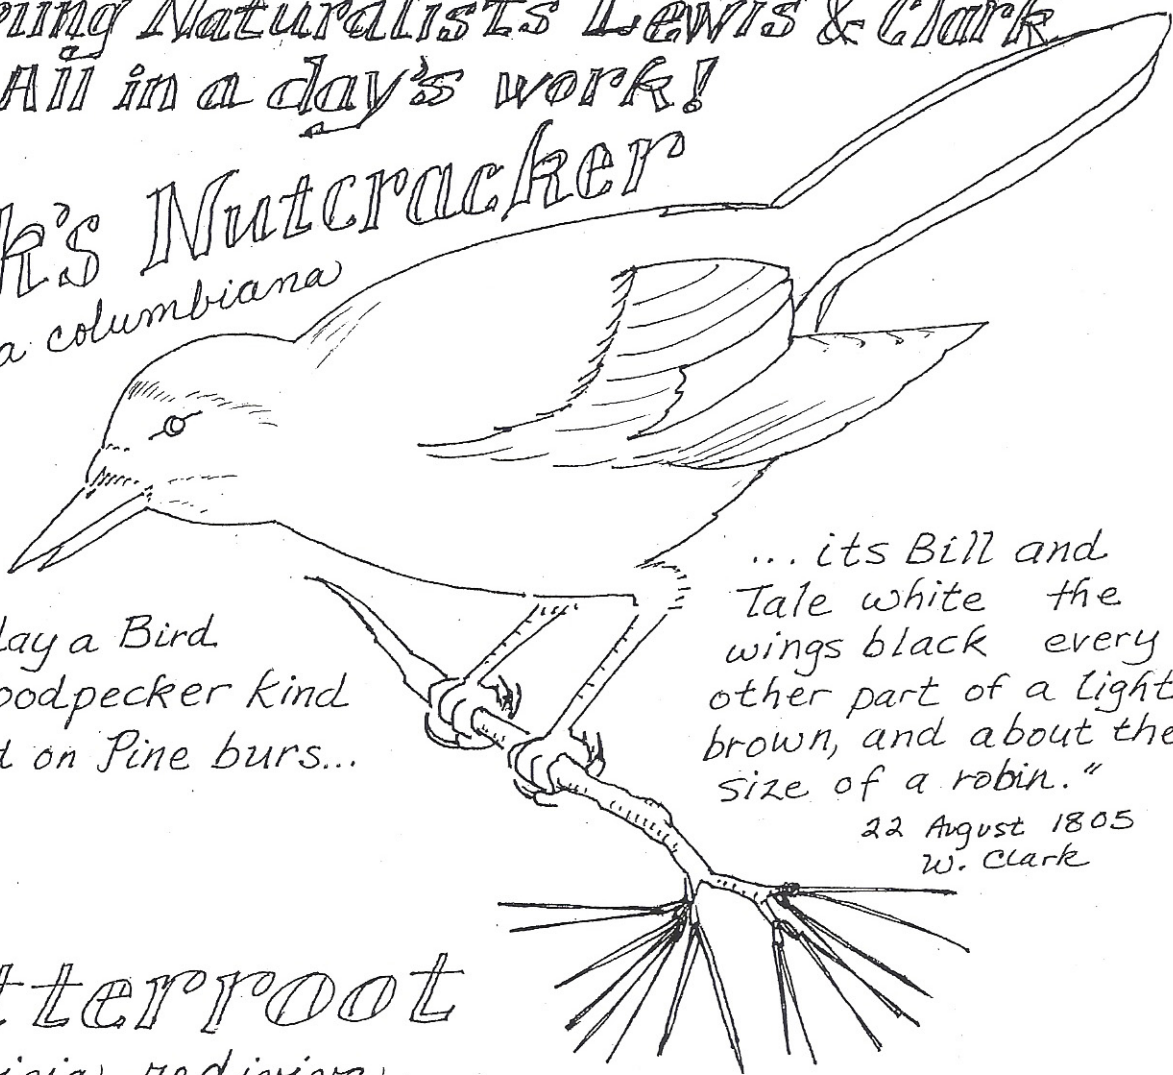 ring Naturalists Lewis & Clark
All in a day's work!
k's Nutcracker
a columbiana
day a Bird
oodpecker kind
d on Pine burs...
... its Bill and
Tale white the
wings black every
other part of a light
brown, and about the
size of a robin."
22 August 1805
W. Clark
tterroot
isia rediviva